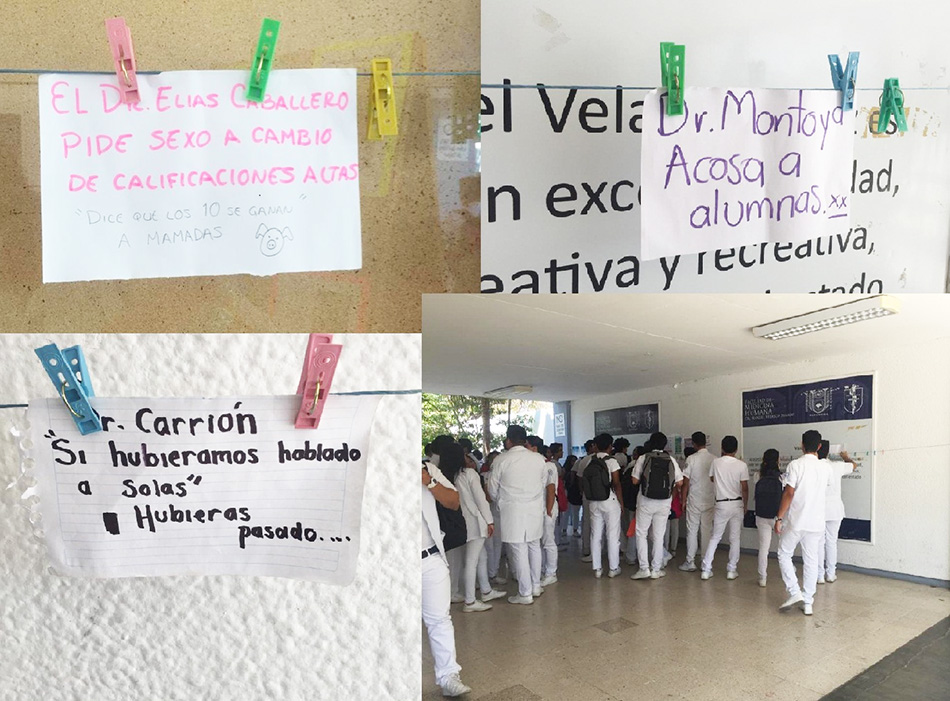 EL DR. ELIAS CABALLERO
PIDE SEXO A CAMBIO
DE CALIFICACIONES ALTAS
"DICE QUE LOS 10 SE GANAN"
A MAMADAS
el Vela
en exce
lad,
eativa y recreativa,
Dr. Montoya
Acosa a
alumnas.xx
r. Carrión
"Si hubieramos hablado
a solas"
Hubieras
pasado....
FACULTAD DE
MEDICINA
HUMANA